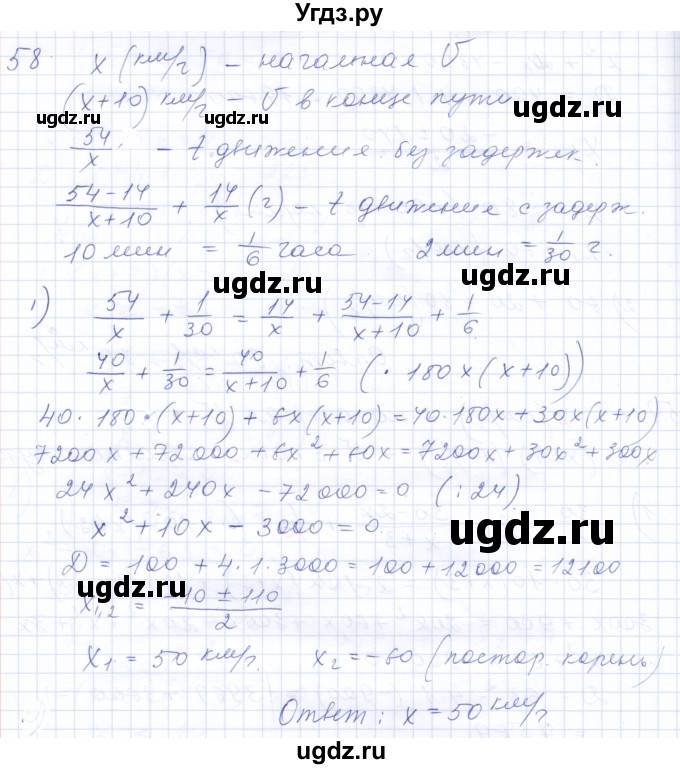 Угдз.ру
58. x (км/г) – начальная V
(x+10) км/г – V в конце пути
ugdz.ru ugdz.ru
54/x – t движения без задержек.
(54-14)/(x+10) + 14/x (г) – t движения с задерж.
10 мин = 1/6 часа 2 мин = 1/30 г.
ugdz.ru ugdz.ru
1) 54/x + 1/30 = 14/x + (54-14)/(x+10) + 1/6
40/x + 1/30 = 40/(x+10) + 1/6 (· 180x(x+10))
ugdz.ru
40 · 180 · (x+10) + 6x(x+10) = 40·180x + 30x(x+10)
7200x + 72000 + 6x² + 60x = 7200x + 30x² + 300x
24x² + 240x – 72000 = 0 (:24)
x² + 10x – 3000 = 0
ugdz.ru
D = 100 + 4·1·3000 = 100 + 12000 = 12100
ugdz.ru
x₁,₂ = (-10 ± 110)/2
x₁ = 50 км/г. x₂ = -60 (постор. корень)
ugdz.ru
Ответ: x = 50 км/г.
ugdz.ru